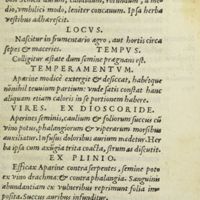 medio, vmbilici modo, leuiter concauum. Ipsa herba
vestibus adhærescit.
LOCVS.
Nascitur in frumentario agro, aut hortis circa
sepes & maceries. TEMPVS.
Colligitur æstate dum semine prægnans est.
TEMPERAMENTVM.
Aparine modicè extergit & desiccat, habétque
nonnihil tenuium partium: vnde satis constat hanc
aliquam etiam caloris in se portionem habere.
VIRES. EX DIOSCORIDE.
Aperines seminis, caulium & foliorum succus cũ
vino potus, phalangiorum & viperarum morsibus
auxiliatur. Infusus doloribus aurium medetur. Her
ba ex axungia suilla trita coacta, strumas discutit.
EX PLINIO.
Efficax Aparine contra serpentes, semine poto
ex vino drachma & contra phalangia. Sanguinis
abundantiam ex vulneribus reprimit folia im
posita. Succus auribus infunditur.